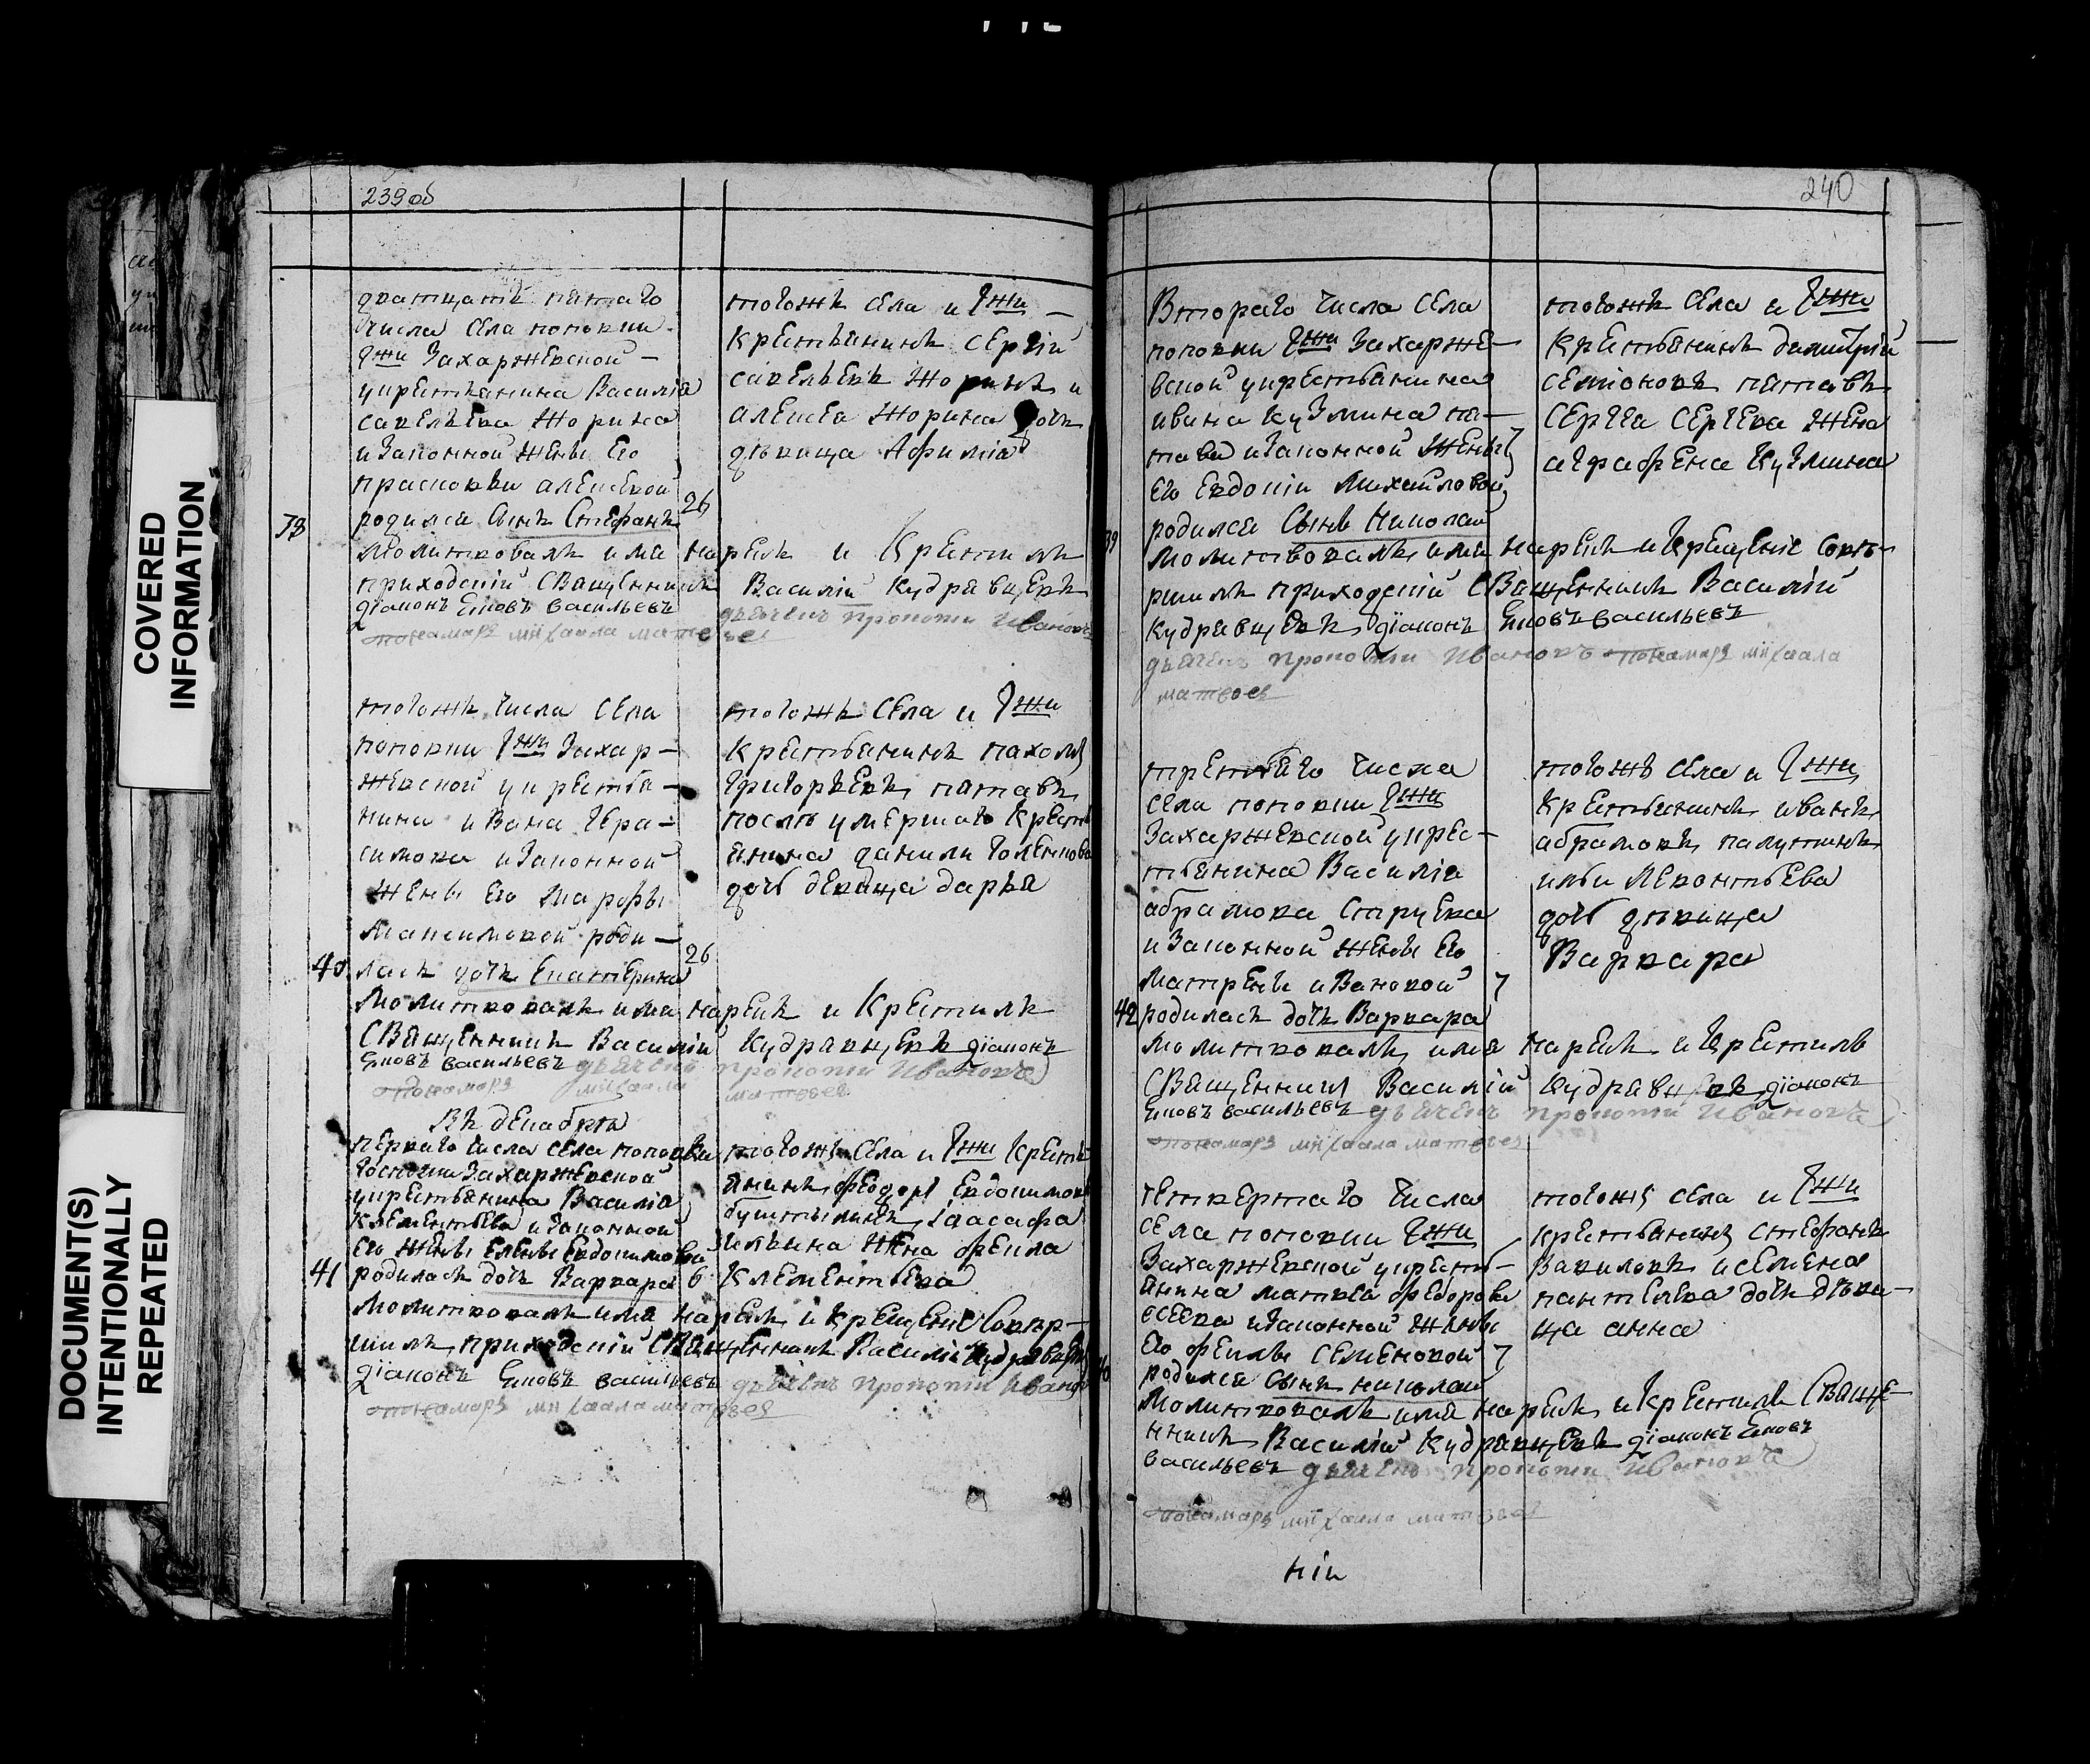 239 об
240
дватцать пятаго
числа села поповки
гжи Захаржевской —
укрестьянина Василiя
савельева жорина
и Законной жены Его
прасковьи алексевой
38 родился сынъ Стефанъ 26
тогожъ села и Гжи —
крестьянинъ сергiй
савельевъ жоринъ и
алексея жорина дочь
девица Афимiя
Молитвовалъ имя нарекъ и Крестилъ
приходскiй Священникъ Василiй Кудрявцевъ
дiаконъ Ековъ васильевъ дьячекъ прокопiй Ивановъ
понамарь михаила матвеев
тогожъ числа села
поповки Гжи Захар—
жевской укрестья—
нина ивана Гера—
симова изаконной
жены Его Марфы
Максимовой роди—
40 лась дочь Екатерина 26
тогожъ села и Гжи
крестьянинъ пахом
Григорьевъ патавъ
послѣ умершаго крест
янина данили Голенков
дочь девица дарья
Молитвовалъ имя нарекъ и Крестилъ
Священникъ Василiй Кудрявцевъ дiаконъ
Ековъ васильевъ дьячекъ прокопiй Ивановъ
понамарь михаила матвеев
Въ декабрѣ
перваго числа села поповки
госпожи Захаржевской
укрестьянина Василiя
Клементьева изаконной
Его жены Елены Евдокимовы
41 родилась дочь Варвара 6
тогожъ села и Гжи крестья
янинъ феодоръ Евдокимовъ
iасафа
жена фекла
Клементьева
Молитвовалъ имя нарекъ и Крещенiе Совер—
шилъ приходскiй Священникъ Василiй Кудрявцевъ
дiаконъ Ековъ васильевъ дьячекъ прокопiй Иванов
понамарь михаила матвеев
Втораго числа села
поповки Гжи Захарже—
вской укрестьянина
ивана Кузмина па—
тава изаконной жены 7
Его Евдокiи Михайловой
39 родился Сынъ Николай
тогожъ села и Гжи
крестьянинъ димитрiй
семiоновъ патавъ
Сергея Сергеева жена
аграфена Кузмина
Молитвовалъ имя нарекъ и Крещенiе совѣ—
ршилъ приходскiй Священникъ Василiй
Кудрявцевъ дiаконъ Ековъ васильевъ
дьячекъ прокопiй Ивановъ понамарь михаила
матвеев
третьяго числа
села поповки Гжи
Захаржевской укрес—
тьянина Василiя
абрамова Струева
изаконной жены Его
Матрены ивановой 7
42 родилась дочь Варвара
тогожъ села и Гжи
Крестьянинъ иванъ
абрамовъ палутинъ
ильи Левонтьева
дочь девица
Варвара
Молитвовалъ имя нарекъ и Крестилъ
Священникъ Василiй Кудрявцевъ дiаконъ
Ековъ васильевъ дьячекъ прокопiй Ивановъ
понамарь михаила матвеев
четвертаго числа
села поповки Гжи
Захаржевской укресть—
янина матвея федорова
изаконной жены
Его феклы Семеновой 7
родился Сынъ николай
тогожъ села и Гжи
крестьянинъ Стефанъ
Вавиловъ исемена
пантелева дочь дѣви—
ца анна
Молитвовалъ имя нарекъ и Крестилъ Свяще—
нникъ Василiй Кудрявцевъ дiаконъ Ековъ
васильевъ дьячекъ прокопiй Ивановъ
понамарь михаила матвеев
нiи
COVERED
INFORMATION
DOCUMENT(S)
INTENTIONALLY
REPEATED